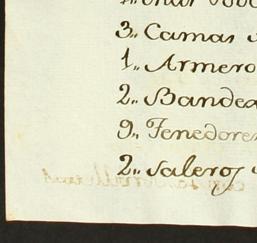 3,, Camas
1,, Armero
2,, Bandea
9,, Tenedores
2,, Saleros